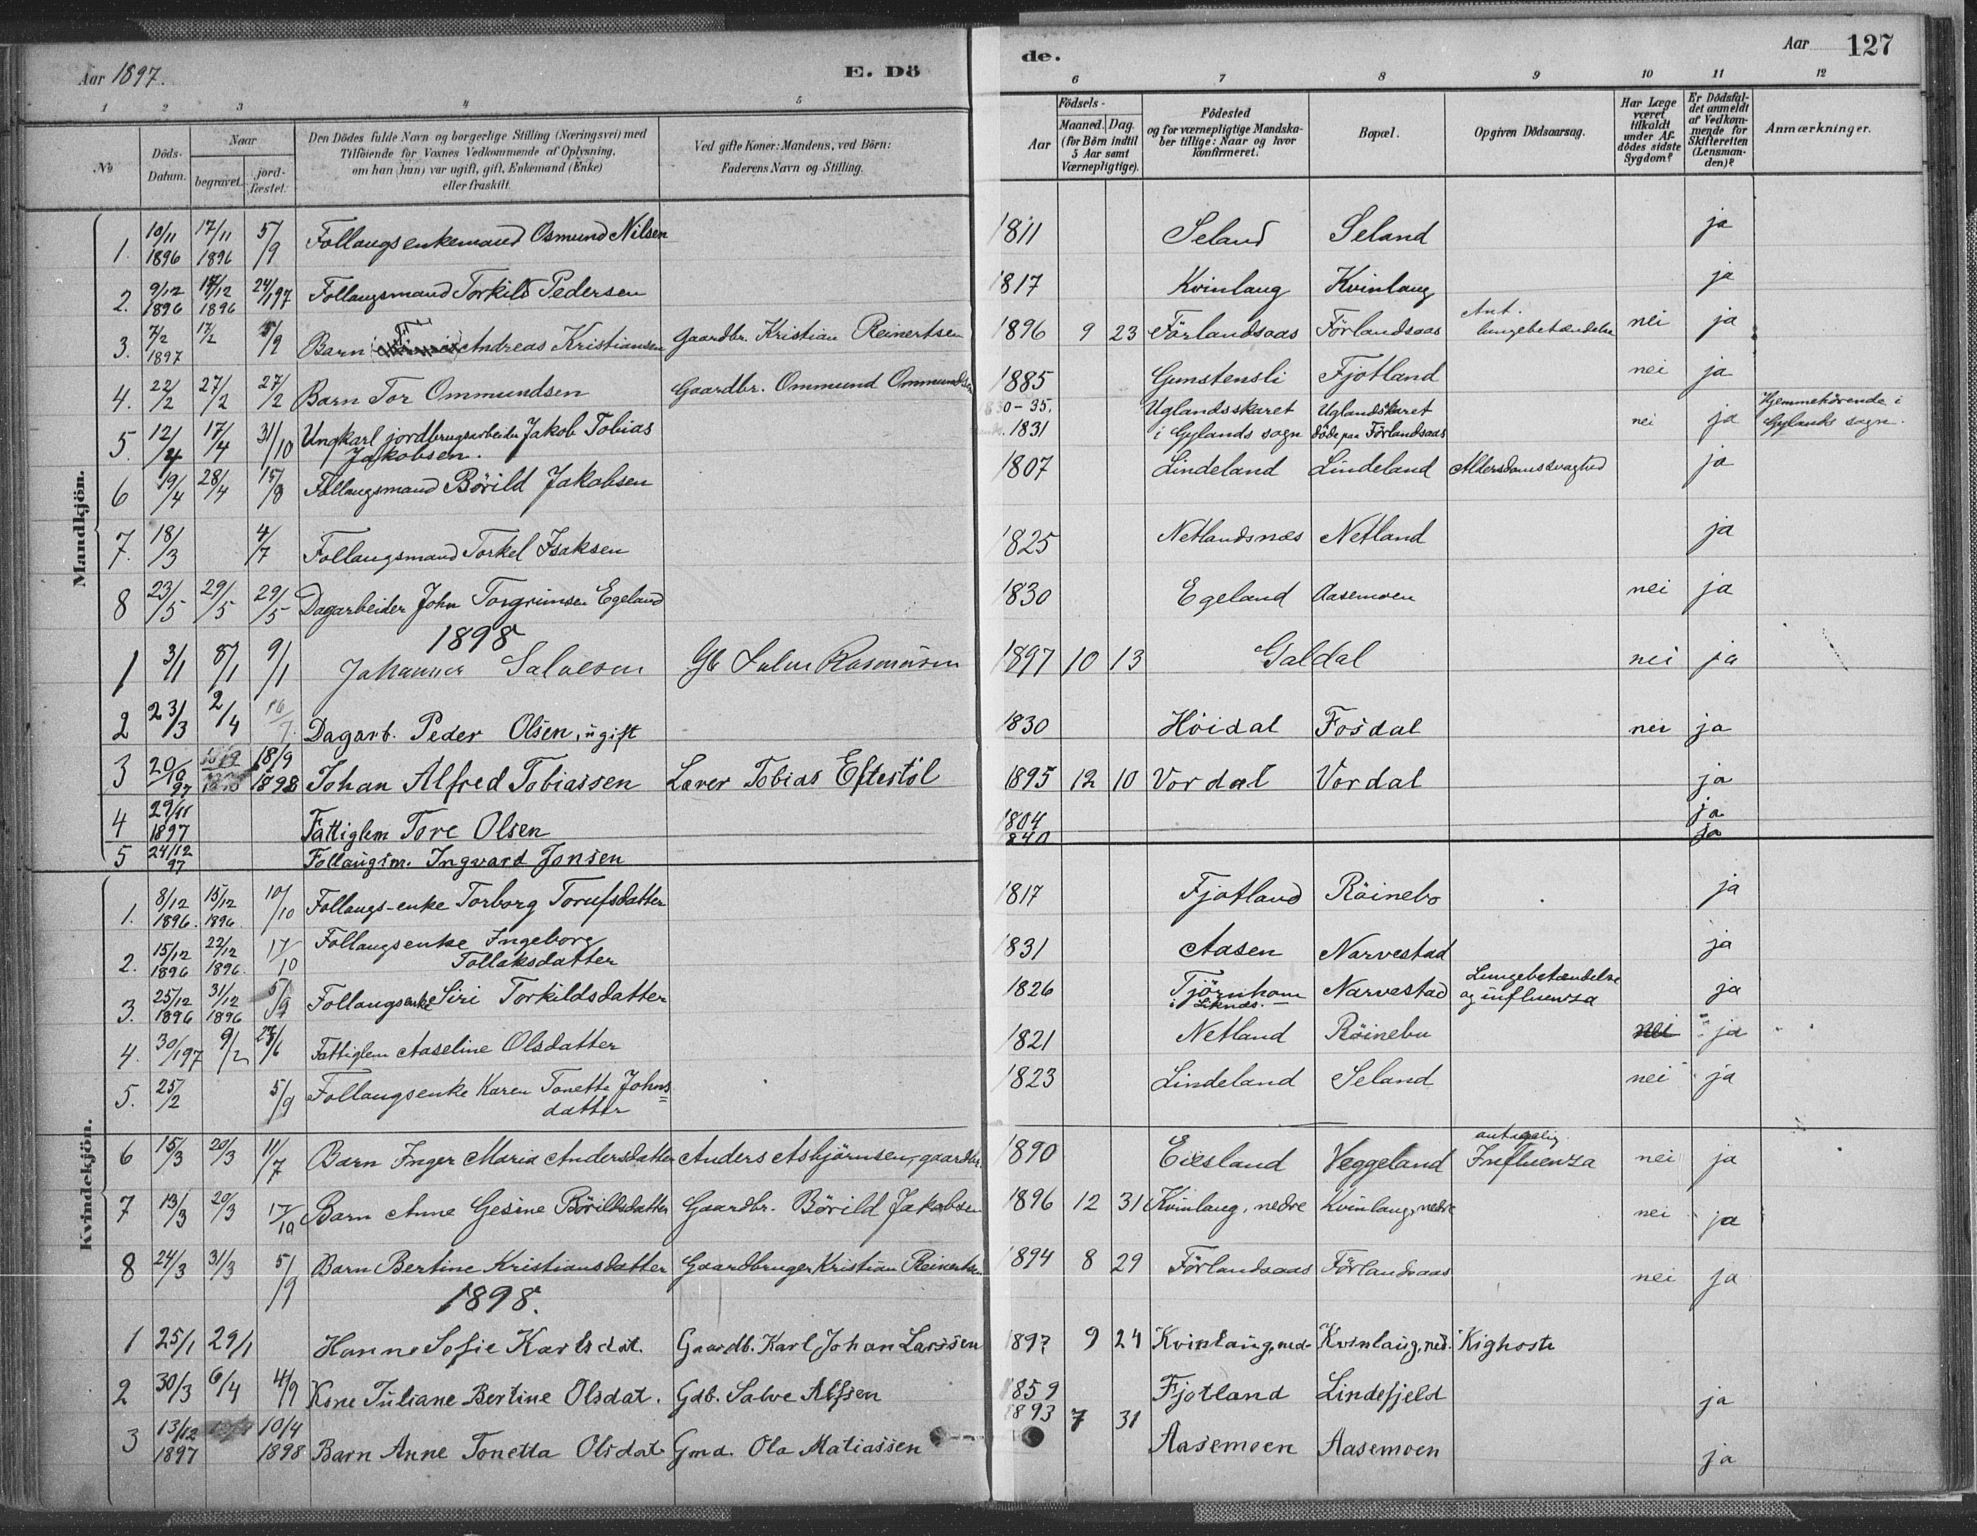 Aar 1897. E. Dö de. Aar 127
1 2 3 4 5 6 7 8 9 10 11 12
No
Döds-Datum.
Naar
begravet.
jord-fæstet.
Den Dödes fulde Navn og borgerlige Stilling (Næringsvei) med
Tilföiende for Voxnes Vedkommende af Oplysning,
om han (hun) var ugift, gift, Enkemand (Enke)
eller fraskilt.
Ved gifte Koner: Mandens, ved Börn:
Faderens Navn og Stilling.
Födsels-
Aar
Maaned. Dag.
(for Börn indtil
5 Aar samt
Værnepligtige).
Födested
og for værnepligtige Mandska-
ber tillige: Naar og hvor
konfirmeret.
Bopæl.
Opgiven Dödsaarsag.
Har Læge
været
tilkaldt
under Af-
dödes sidste
Sygdom?
Er Dödsfal-
det anmeldt
af Vedkom-
mende for
Skifteretten
(Lensman-
den)?
Anmærkninger.
Mandkjön.
1. 10/11 1896 17/11 1896 5/9 Follaugsenkemand Osmund Nilsen 1811 Seland Seland ja
2. 9/12 1896 17/12 1896 24/1 97 Follaugsmand Torkild Pedersen 1817 Kvinlaug Kvinlaug ja
3. 7/2 1897 17/2 5/9 Barn Andreas Kristiansen Gaardbr. Kristian Reinertsen 1896 9 23 Förlandsaas Förlandsaas Ant. lungebetændelse nei ja
4. 22/2 27/2 27/2 Barn Tor Ommundsen Gaardbr. Ommund Ommundsen 1885 Gunstensli Fjotland nei ja
5. 12/4 17/4 31/10 Ungkarl jordbrugsarbeider Jakob Tobias Jakobsen. 1830-35. 1831 Uglandsskaret i Gylands sogn Uglandskaret döde paa Förlandsaas nei ja Hjemmehörende i Gylands sogn.
6 19/4 28/4 15/8 Follaugsmand Börild Jakobsen 1807 Lindeland Lindeland Alderdomssvaghed ja
7. 18/3 4/7 Follaugsmand Torkel Isaksen 1825 Netlandsnæs Netland ja
8 23/5 29/5 29/5 Dagarbeider John Torgrimsen Egeland 1830 Egeland Aasemoen nei ja
1898
1 3/1 8/1 9/1 Johannes Salvesen Gb Salve Rasmusen 1897 10 13 Galdal nei ja
2 23/3 2/4 16/7 Dagarb. Peder Olsen, ugift 1830 Höidal Fosdal nei ja
3 20/9 97 18/9 1898 Johan Alfred Tobiassen Lærer Tobias Eftestöl 1895 12 10 Vordal Vordal ja
4 29/11 1897 Fattiglem Tore Olsen 1804 ja
5 24/12 97 Follaugsm. Ingvard Jonsen 1840 ja
Kvindekjön.
1. 8/12 1896. 15/12 1896. 10/10 Follaugs-enke Torborg Torufsdatter 1817 Fjotland Röinebo ja
2. 15/12 1896 22/12 1896. 17/10 Follaugsenke Ingeborg Tollaksdatter 1831 Aasen Narvestad ja
3. 25/12 1896 31/12 1896 5/9 Follaugsenke Siri Torkildsdatter 1826 Tjörnhom i Liknes. Narvestad Lungebetændelse og influenza ja
4. 30/1 97 9/2 27/6 Fattiglem Aaseline Olsdatter 1821 Netland Röinebu nei ja
5. 25/2 5/9 Follaugsenke Karen Tonette Johns=datter 1823 Lindeland Seland nei ja
6 15/3 20/3 11/7 Barn Inger Maria Andersdatter Anders Asbjörnsen, gaardbr. 1890 Eiesland Veggeland antagelig Influenza nei ja
7 13/3 20/3 17/10 Barn Anne Gesine Börildsdatter Gaardbr. Börild Jakobsen 1896 12 31 Kvinlaug, nedre Kvinlaug, nedre nei ja
8 24/3 31/3 5/9 Barn Bertine Kristiansdatter Gaardbruger Kristian Reinertsen 1894 8 29 Förlandsaas Förlandsaas nei ja
1898.
1 25/1 29/1 Hanne Sofie Karlsdat. Gaardb. Karl Johan Larssen 1897 9 24 Kvinlaug, ned. Kvinlaug, ned. Kighoste
2 30/3 6/4 4/9 Kone Juliane Bertine Olsdat. Gdb. Salve Alfsen 1859 Fjotland Lindefjeld ja
3 13/12 1897 10/4 1898 Barn Anne Tonetta Olsdat. Gmd. Ola Matiassen 1893 7 31 Aasemoen Aasemoen ja